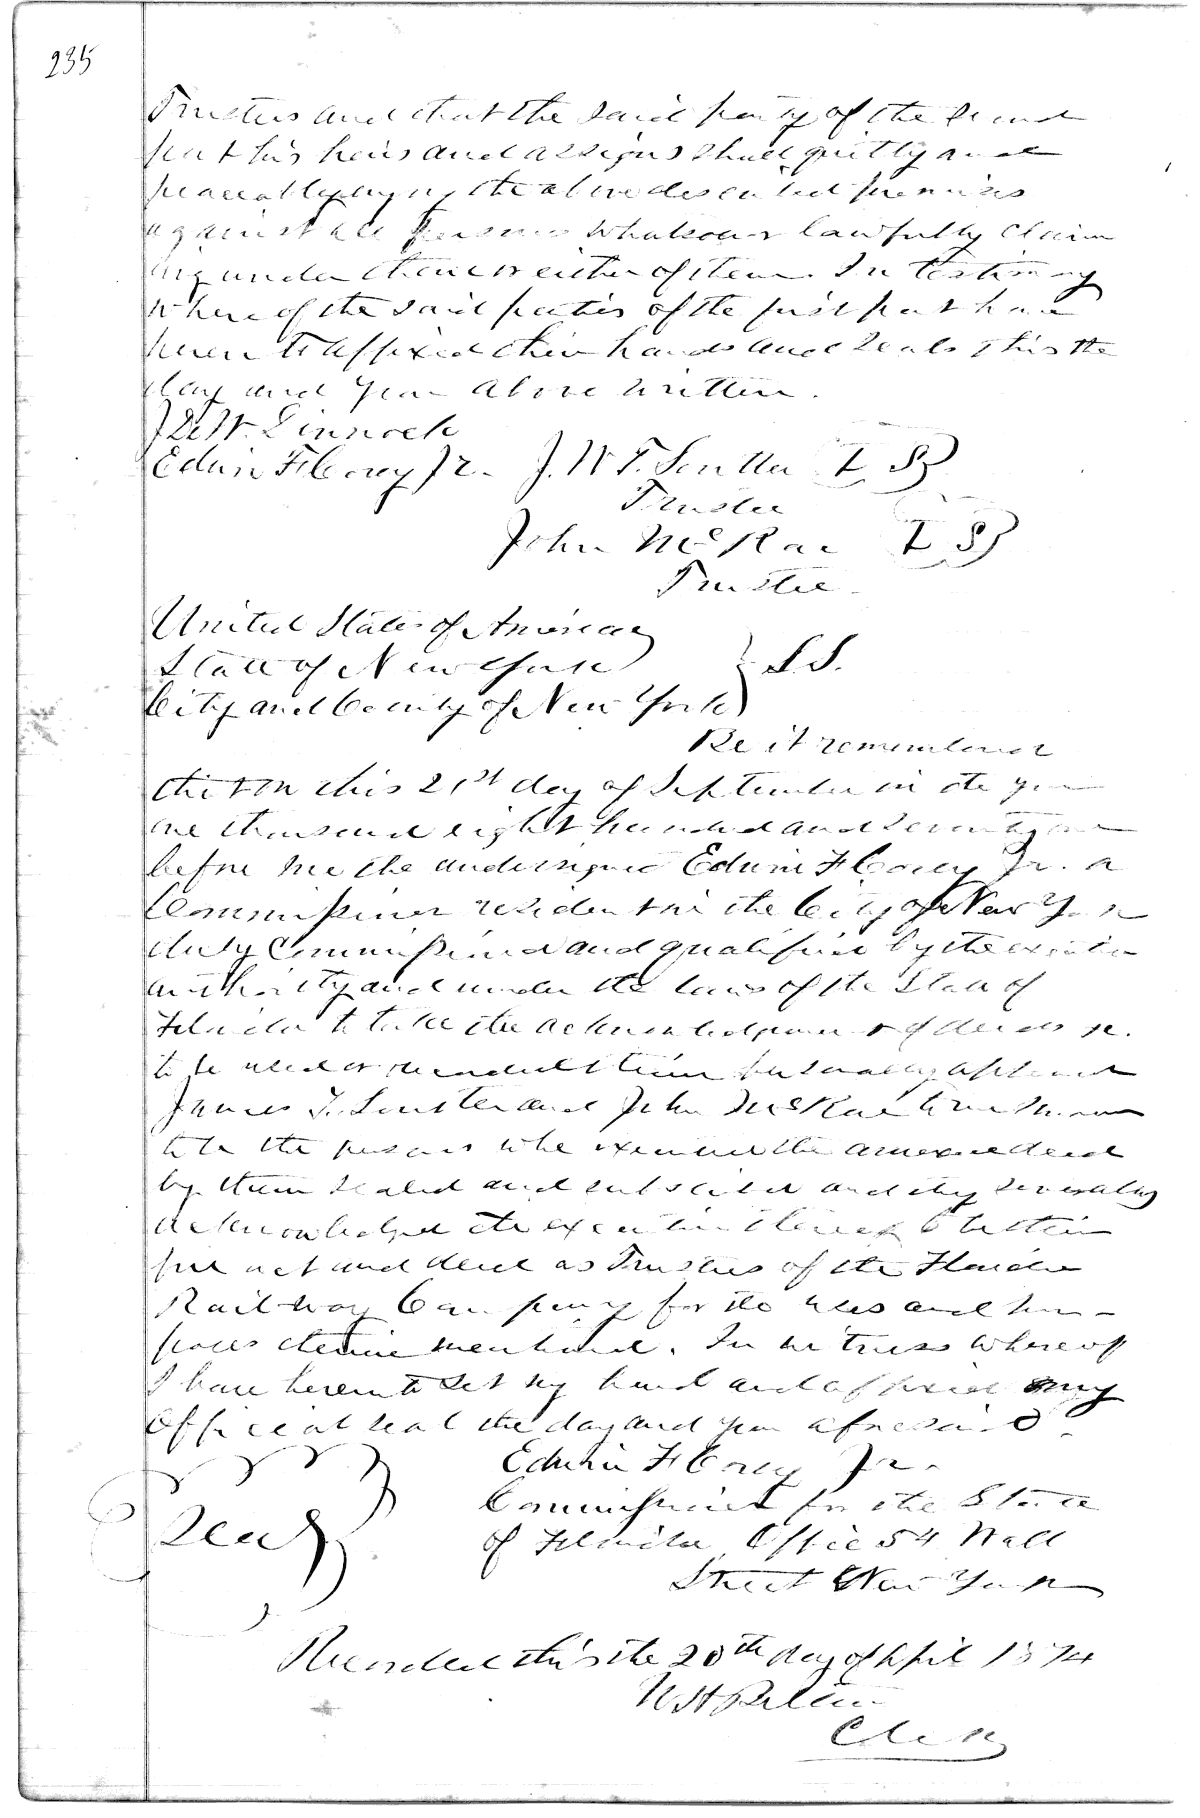 235
Trustees and that the said party of the second
part his heirs and assigns shall quietly and
peaceably enjoy the above described premises
against all persons whatsoever lawfully claim
ing under them or either of them. In testimony
where of the said parties of the first part have
hereunto affixed their hands and seals this the
day and year above written.
J DeW.
Edwin F Corey Jr. J. W T. (L S)
Trustee
John McRae (L S)
Trustee
United States of America
State of New York } S.S.
City and County of New York
Be it remembered
that on this 21st day of September in the year
one thousand eight hundred and seventy one
before me the undersigned Edwin F Corey Jr. a
Commissioner resident in the City of New York
duly Commissioned and qualified by the executive
authority and under the laws of the State of
Florida to take the acknowledgment of deeds &c.
to be used or recorded therein personally appeared
James T. Soutter and John McRae to me known
to be the persons who executed the annexed deed
by them sealed and subscribed and they severally
acknowledged the execution thereof to be their
free act and deed as Trustees of the Florida
Railway Company for the uses and pur-
poses therein mentioned. In witness whereof
I have hereunto set my hand and affixed my
Official seal the day and year aforesaid.
Edwin F Corey Jr.
Seal Commissioner for the State
of Florida Office 54 Wall
Street New York
Recorded this the 20th day of April 1874
Clerk